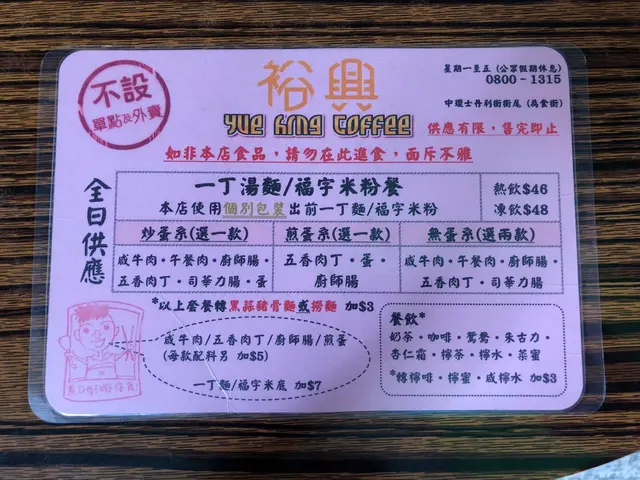 不設
單點及外賣
裕興
Yue hing Coffee
星期一至五 (公眾假期休息)
0800 - 1315
中環士丹利街街尾 (為食街)
供應有限,售完即止
如非本店食品,請勿在此進食,面斥不雅
全日供應
一丁湯麵/福字米粉餐
本店使用個別包裝出前一丁麵/福字米粉
熱飲$46
凍飲$48
炒蛋系(選一款)
煎蛋系(選一款)
無蛋系(選兩款)
咸牛肉·午餐肉·廚師腸·
五香肉丁·司華力腸·蛋
五香肉丁·蛋·
廚師腸
咸牛肉·午餐肉·廚師腸·
五香肉丁·司華力腸
*以上套餐轉黑蒜豬骨麵或撈麵 加$3
咸牛肉/五香肉丁/廚師腸/煎蛋
(每款配料另 加$5)
一丁麵/福字米底 加$7
餐飲*
奶茶·咖啡·鴛鴦·朱古力·
杏仁霜·檸茶·檸水·菜蜜
*轉檸啡·檸蜜·咸檸水 加$3